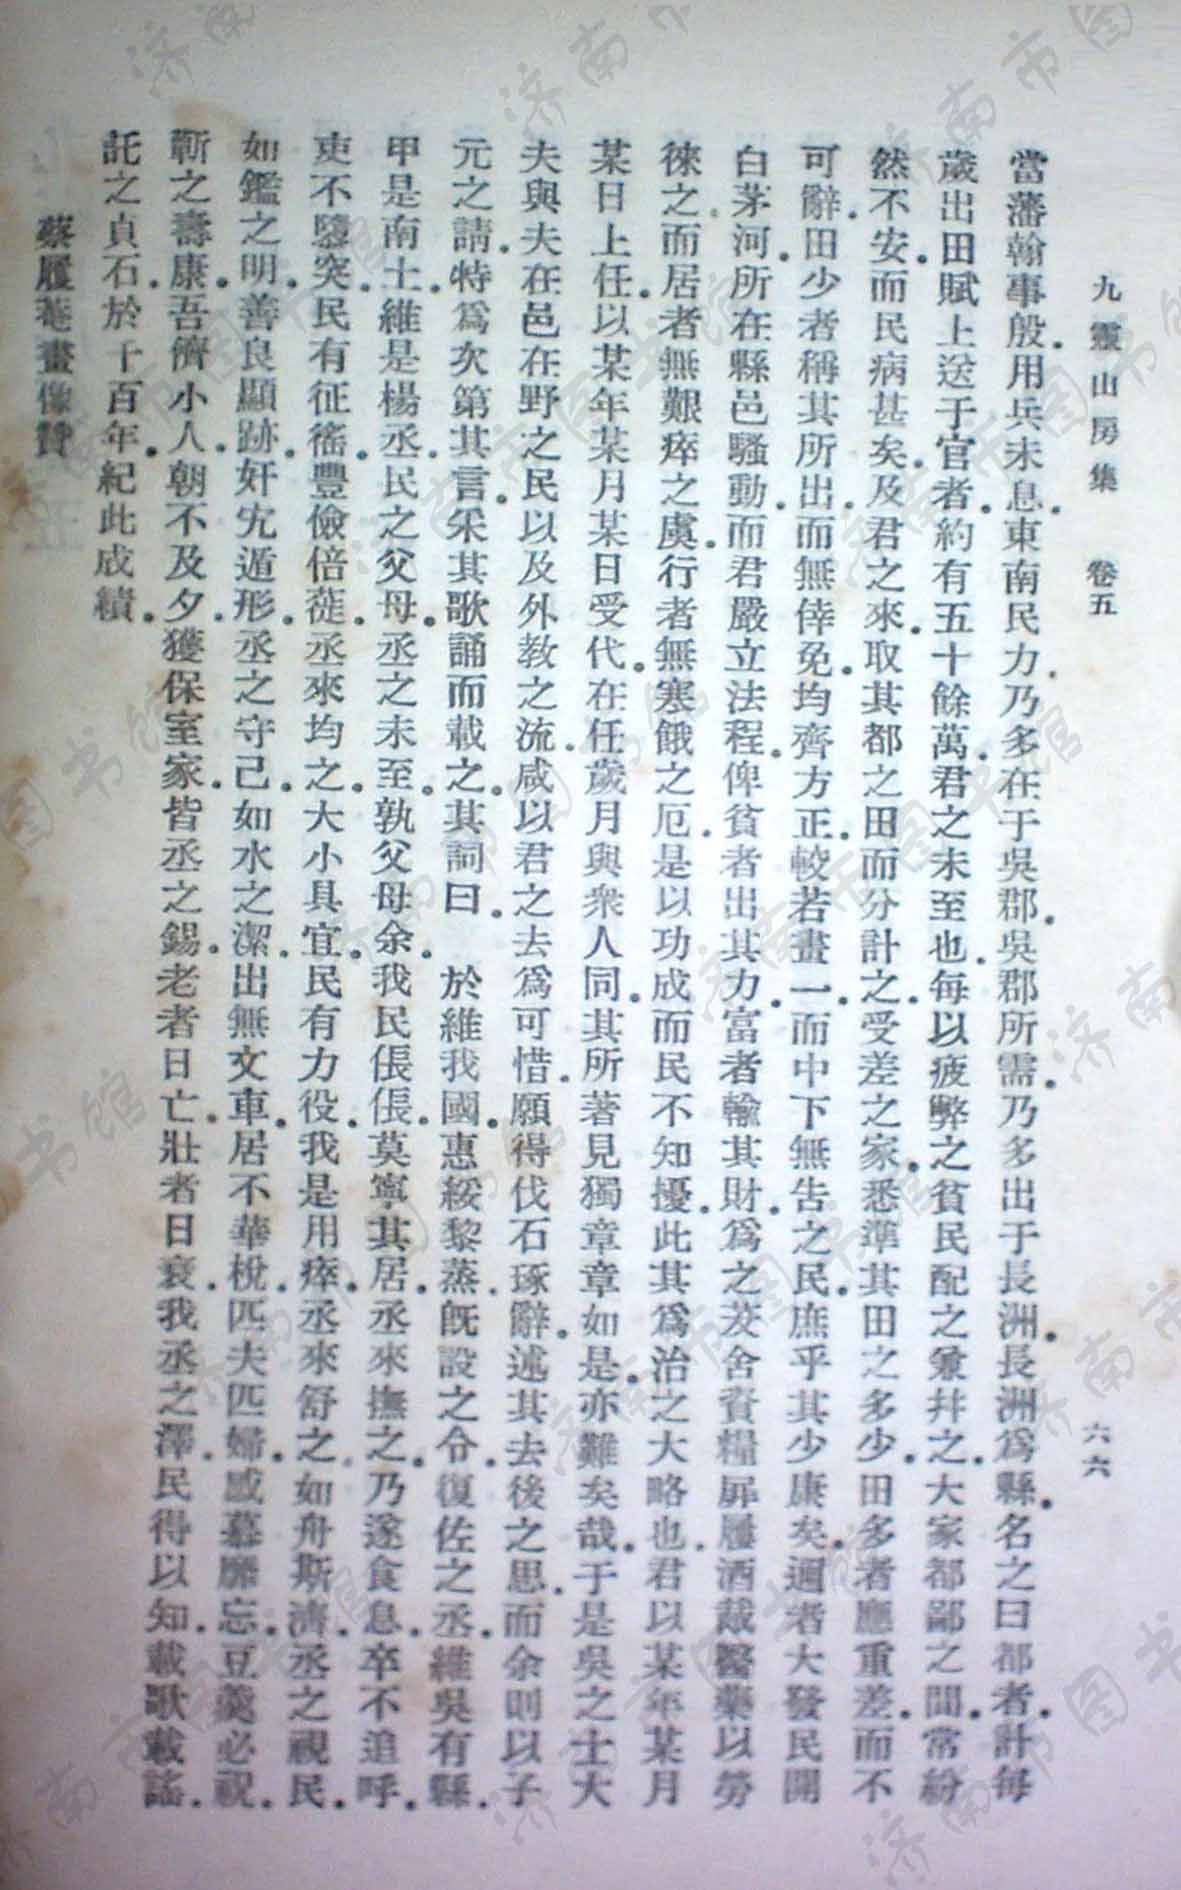 九靈山房集　卷五
六六
當藩翰事殷用兵未息東南民力乃多在于吳郡吳郡所需乃多出于長洲長洲爲縣名之曰都者計每
歲出田賦上送于官者約有五十餘萬君之未至也每以疲弊之貧民配之兼并之大家都鄙之間常紛
然不安而民病甚矣及君之來取其都之田而分計之受差之家悉準其田之多少田多者應重差而不
可辭田少者稱其所出而無倖免均齊方正較若畫一而中下無告之民庶乎其少康矣迺者大發民開
白茅河所在縣邑騷動而君嚴立法程俾貧者出其力富者輸其財爲之茇舍資糧屝屨酒胾醫藥以勞
徠之而居者無艱瘁之虞行者無寒餓之厄是以功成而民不知擾此其爲治之大略也君以某年某月
某日上任以某年某月某日受代在任歲月與衆人同其所著見獨章章如是亦難矣哉于是吳之士大
夫與夫在邑在野之民以及外教之流咸以君之去爲可惜願得伐石琢辭述其去後之思而余則以子
元之請特爲次第其言采其歌誦而載之其詞曰　於維我國惠綏黎蒸旣設之令復佐之丞維吳有縣
甲是南土維是楊丞民之父母丞之未至孰父母余我民倀倀莫寧其居丞來撫之乃遂食息卒不追呼
吏不隳突民有征徭豐儉倍蓰丞來均之大小具宜民有力役我是用瘁丞來舒之如舟斯濟丞之視民
如鑑之明善良顯跡奸宄遁形丞之守己如水之潔出無文車居不華梲匹夫匹婦感慕靡忘豆羹必祝
蘄之壽康吾儕小人朝不及夕獲保室家皆丞之錫老者日亡壯者日衰我丞之澤民得以知載歌載謠
託之貞石於千百年紀此成績
蔡履菴畫像贊
济南市图书馆